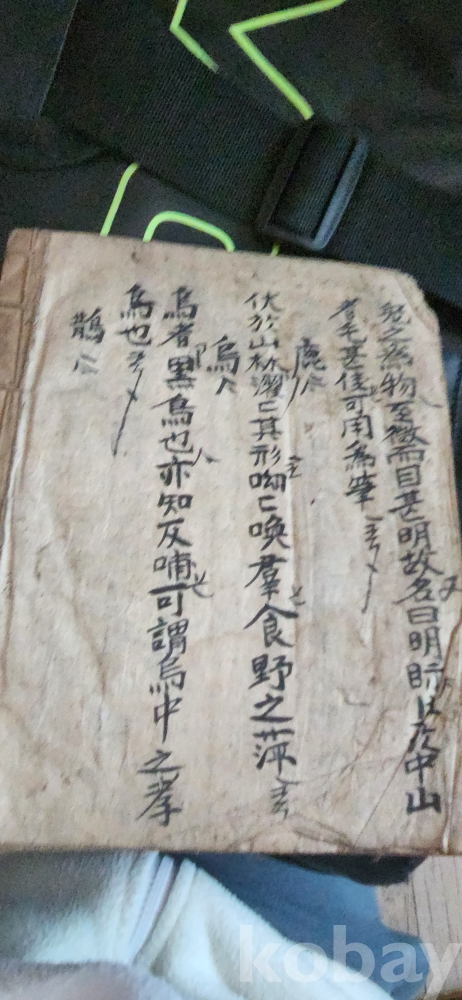 兔之爲物至微而目甚明故名曰明眎且産中山
者毛甚佳可用爲筆
鹿
伏於山林濯〻其形呦〻喚羣食野之萍
烏
烏者黑烏也亦知反哺可謂烏中之孝
烏也
鵲
kobay